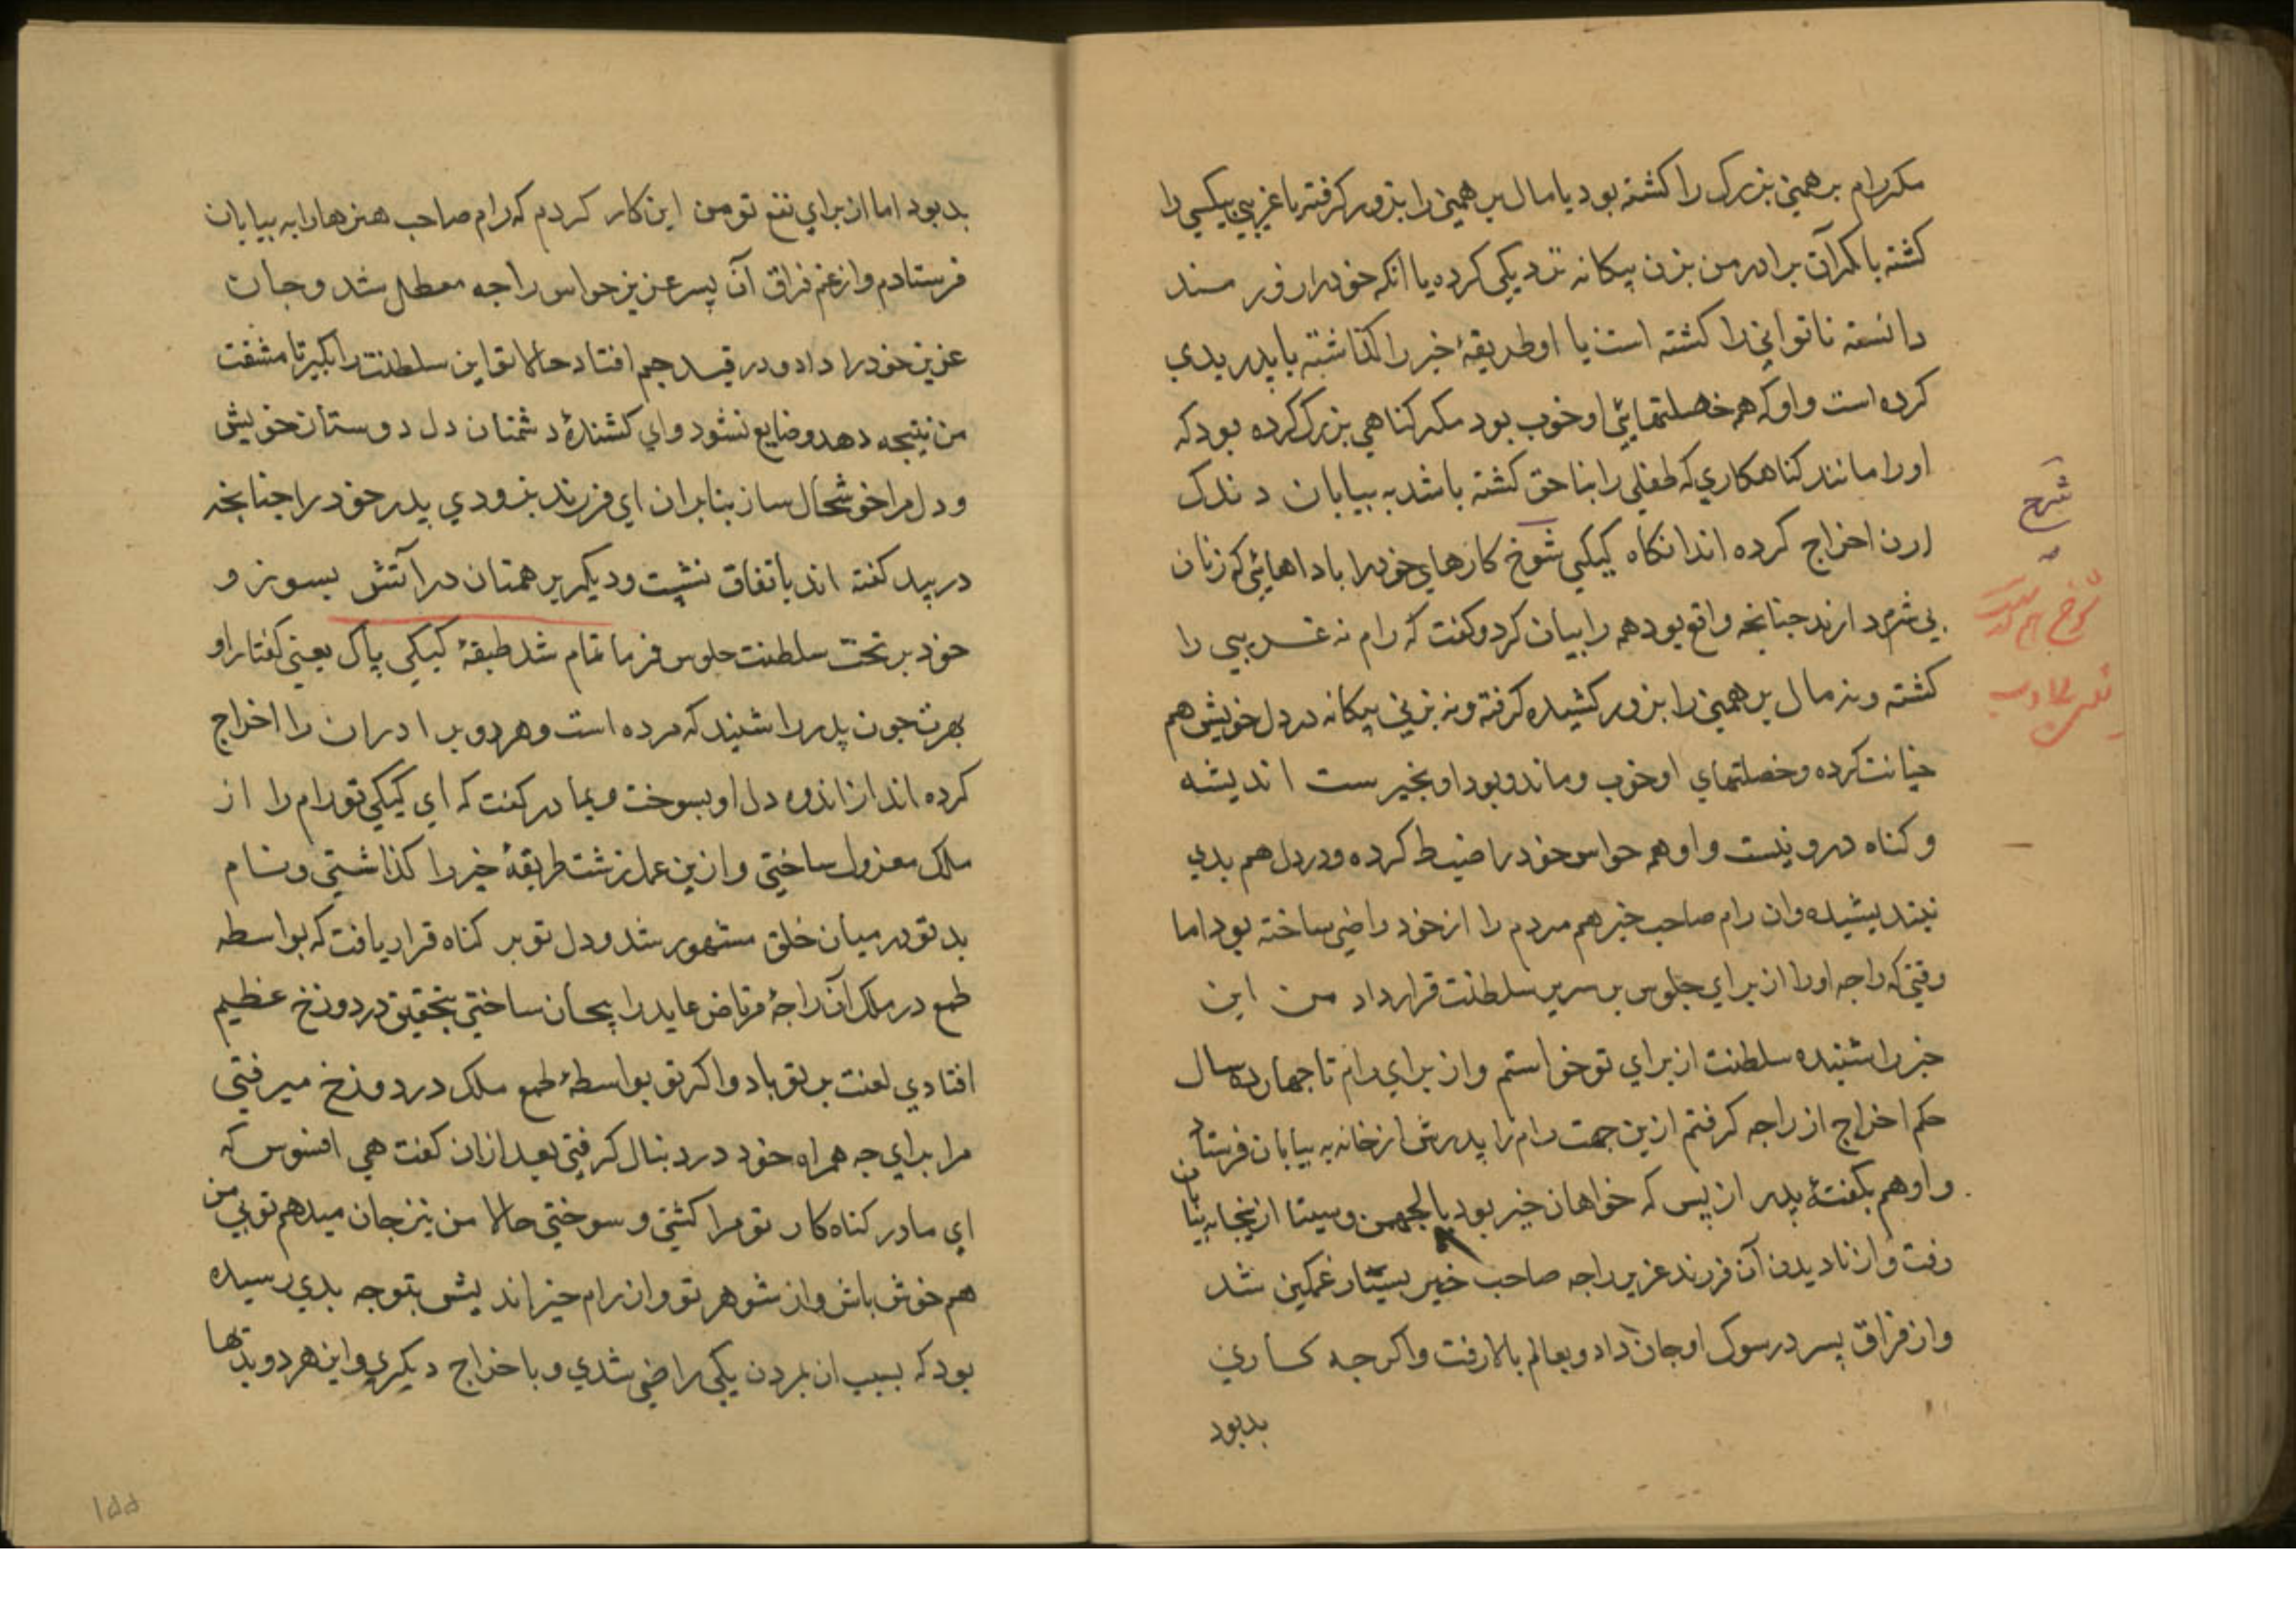 مکر رام برهمنی بزرک را کشته بود یا مال برهمنی را بزور کرفته یا غریبی بیکسی را
کشته یا مکر آن برادر من بزن بیکانه نزدیکی کرده یا آنکه خود را زور مند
دانسته ناتوانی را کشته است یا او طریقهٔ خیر را کذاشته با پدر بدی
کرده است و او که همه خصلتهائی او خوب بود مکر کناهی بزرک کرده بود که
او را مانند کناهکاری که طفلی را بناحق کشته باشد به بیابان دندک
ارن اخراج کرده اند انکاه کیکی شوخ کارهای خود را با داهائی که زنان
بی شرم دارند جنانجه واقع بود همه را بیان کرد و کفت که رام نه غریبی را
کشته و نه مال برهمنی را بزور کشیده کرفته و نه بزنی بیکانه در دل خویش هم
خیانت کرده و خصلتهای او خوب و ماند و بود او بخیرست اندیشه
و کناه درو نیست و او همه حواس خود را ضبط کرده و در دل هم بدی
نیندیشیده و ان رام صاحب خیر هم مردم را از خود راضی ساخته بود اما
وقتی که راجه او را از برای جلوس بر سریر سلطنت قرار داد من این
خبر را شنیده سلطنت از برای تو خواستم و از برای رام تا جهارده سال
حکم اخراج از راجه کرفتم ازین جهت رام را پدرش از خانه به بیابان فرستاد
و او هم بکفتهٔ پدر از پس که خواهان خیر بود با لجهمن و سیتا از ینجا به بیابان
رفت و از نادیدن آن فرزند عزیز راجه صاحب خیر بسیار غمکین شد
و از فراق پسر در سوک او جان داد و بعالم بالا رفت و اکرجه کساری
بدبود
شرح
بدبود اما از برای نفع تو من این کار کردم که رام صاحب هنرها را به بیابان
فرستادم و از غم فراق آن پسر عزیز حواس راجه معطل شد و جان
عزیز خود را داد و در قید جم افتاد حالا تو این سلطنت را بکیر تا مشقت
من نتیجه دهد و ضایع نشود و ای کشندهٔ دشمنان دل دوستان خویش
و دل مرا خوشحال ساز بنابران ای فرزند بزودی پدر خود را جنانجه
در بید کفته اند باتفاق نشپت و دیکر برهمنان در آتش بسوز و
خود بر تخت سلطنت جلوس فرما تمام شد طبقهٔ کیکی پاک یعنی کفتار او
بهرت جون پدر را شنید که مرده است و هر دو برادران را اخراج
کرده اند از اندوه دل او بسوخت و بمادر کفت که ای کیکی تو رام را از
ملک معزول ساختی و ازین عمل زشت طریقهٔ خیر را کذاشتی و نام
بد تو در میان خلق مشهور شد و دل تو بر کناه قرار یافت که بواسطه
طمع در ملک آن راجهٔ مرتاض عابد را بیجان ساختی بتحقیق در دوزخ عظیم
افتادی لعنت بر تو باد و اکر تو بواسطهٔ طمع ملک در دوزخ میرفتی
مرا برای جه همراه خود در دنبال کرفتی بعد ازان کفت هی افسوس که
ای مادر کناه کار تو مرا کشتی و سوختی حالا من نیز جان میدهم تو بی من
هم خوش باش و از شوهر تو و از رام خیر اندیش بتو جه بدی رسیده
بود که بسبب ان بمردن یکی راضی شدی و باخراج دیکری و این هر دو بدیها
۱۵۵